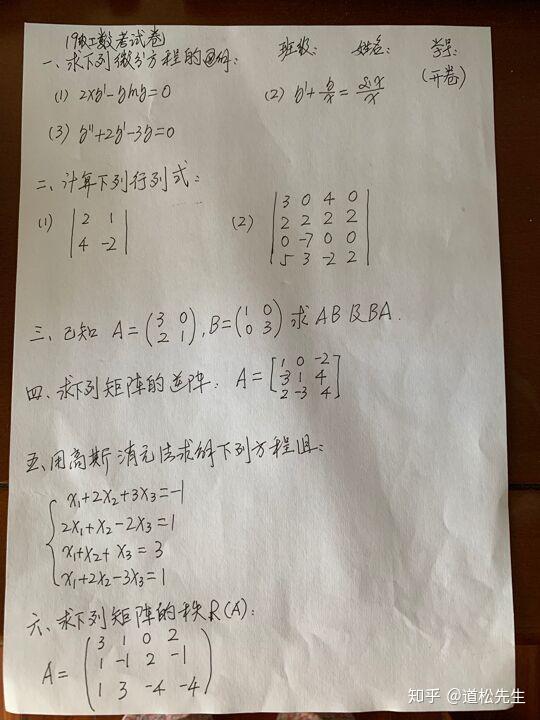 19级工数考试卷 班级: 姓名: 学号:
一、求下列微分方程的通解: (开卷)
(1) 2xy'-ylny=0 (2) y'+y/x=sinx/x
(3) y''+2y'-3y=0
二、计算下列行列式:
(1) | 2 1 | (2) | 3 0 4 0 |
| 4 -2 | | 2 2 2 2 |
| 0 -7 0 0 |
| 5 3 -2 2 |
三、已知 A=(3 0; 2 1), B=(1 0; 0 3) 求AB及BA.
四、求下列矩阵的逆阵: A=[1 0 -2
3 1 4
2 -3 4]
五、用高斯消元法求解下列方程组:
x₁+2x₂+3x₃=-1
2x₁+x₂-2x₃=1
x₁+x₂+x₃=3
x₁+2x₂-3x₃=1
六、求下列矩阵的秩R(A):
A=(3 1 0 2
1 -1 2 -1
1 3 -4 -4)
知乎 @道松先生